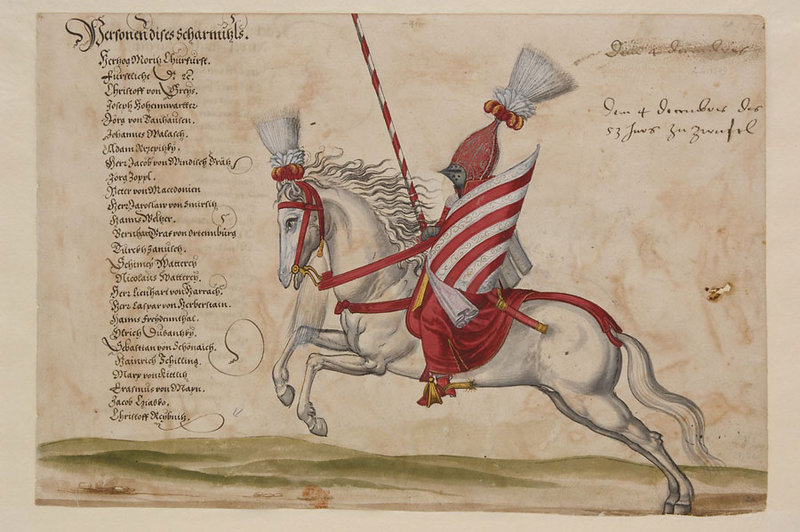 Personen dises Scharmützls.
Hertzog Moritz Churfürst.
Fürstliche D: ꝛc.
Christoff von Greys.
Joseph Hohennwartter
Jörg von Tanhausen.
Johannes Walasch.
Adam Rzepitzky.
Herr Jacob von Windisch Grätz
Jörg Zoppl.
Peter von Macedonien
Herr Jaroslaw von Smirsitz
Hanns Weltzer.
Bernhart Graf von Ortennburg
Türckh Janusch.
Watterey
Nicolaus Watterey.
Herr Lienhart von Harrach.
Herr Caspar von Herberstain.
Hanns Freydennthal.
Ulrich Dubantzky.
Sebastian von Schönaich.
Hainrich Schilling.
Marx von Kittlitz
Erasmus von Mayn.
Jacob
Christoff Reybnitz.
Den 4 decembris des
53 Jars zu